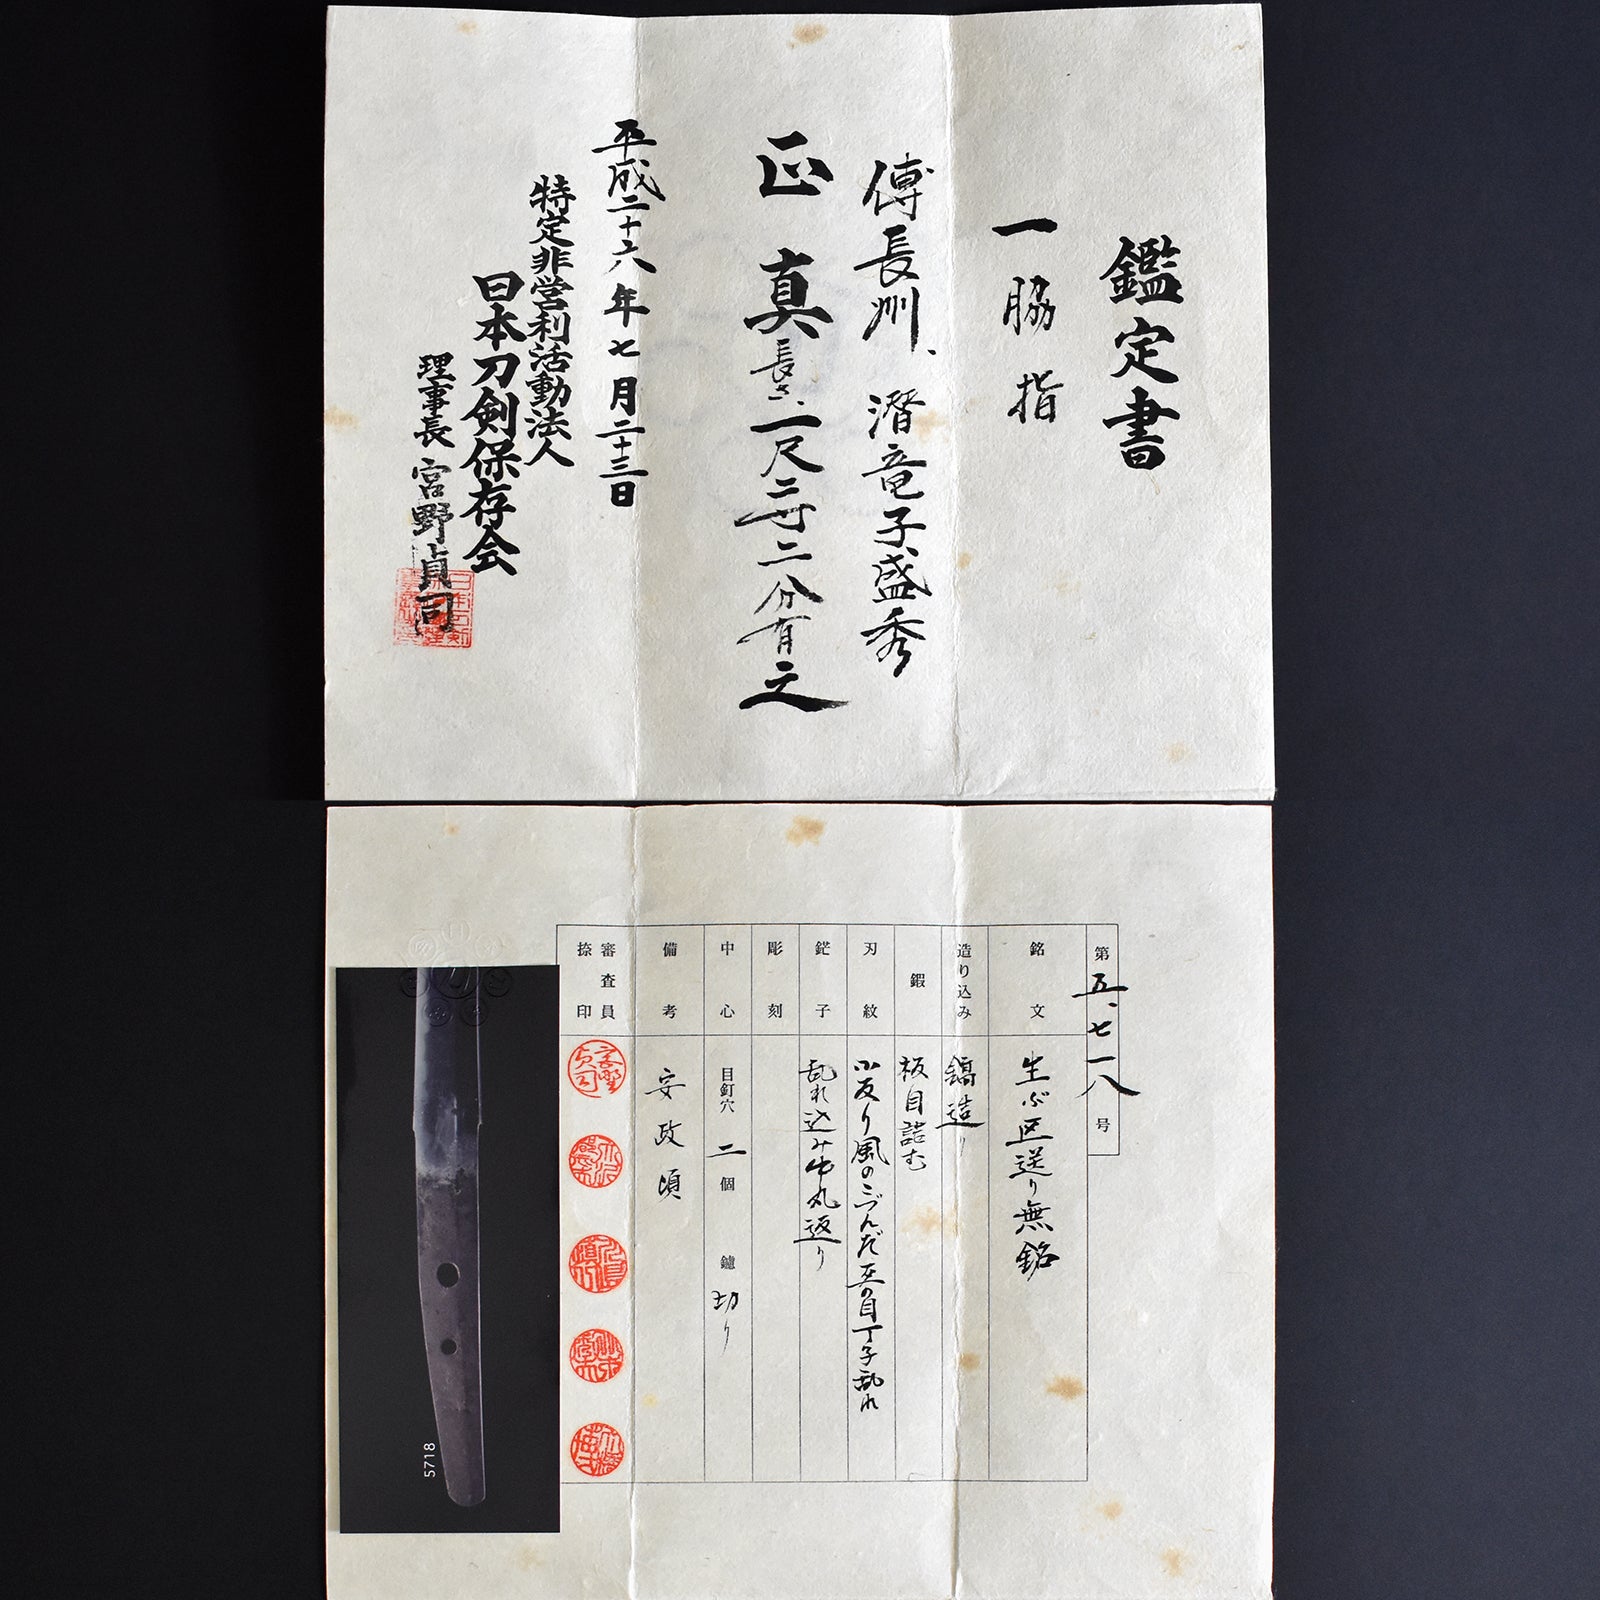 鑑定書
一 脇指
傳長州、潜竜子盛秀
正真 長さ、一尺二寸二分有之
平成二十六年七月二十三日
特定非営利活動法人
日本刀剣保存会
理事長 宮野貞司
第五、七一八号
銘文 生ぶ区送り無銘
造り込み 鎬造り
鍜 板目詰む
刃紋 小反り風のこづんだ互の目丁子乱れ
鋩子 乱れ込み中丸返り
彫刻
中心 目釘穴 二個 鑢 切り
備考 安政頃
審査員
捺印
5718